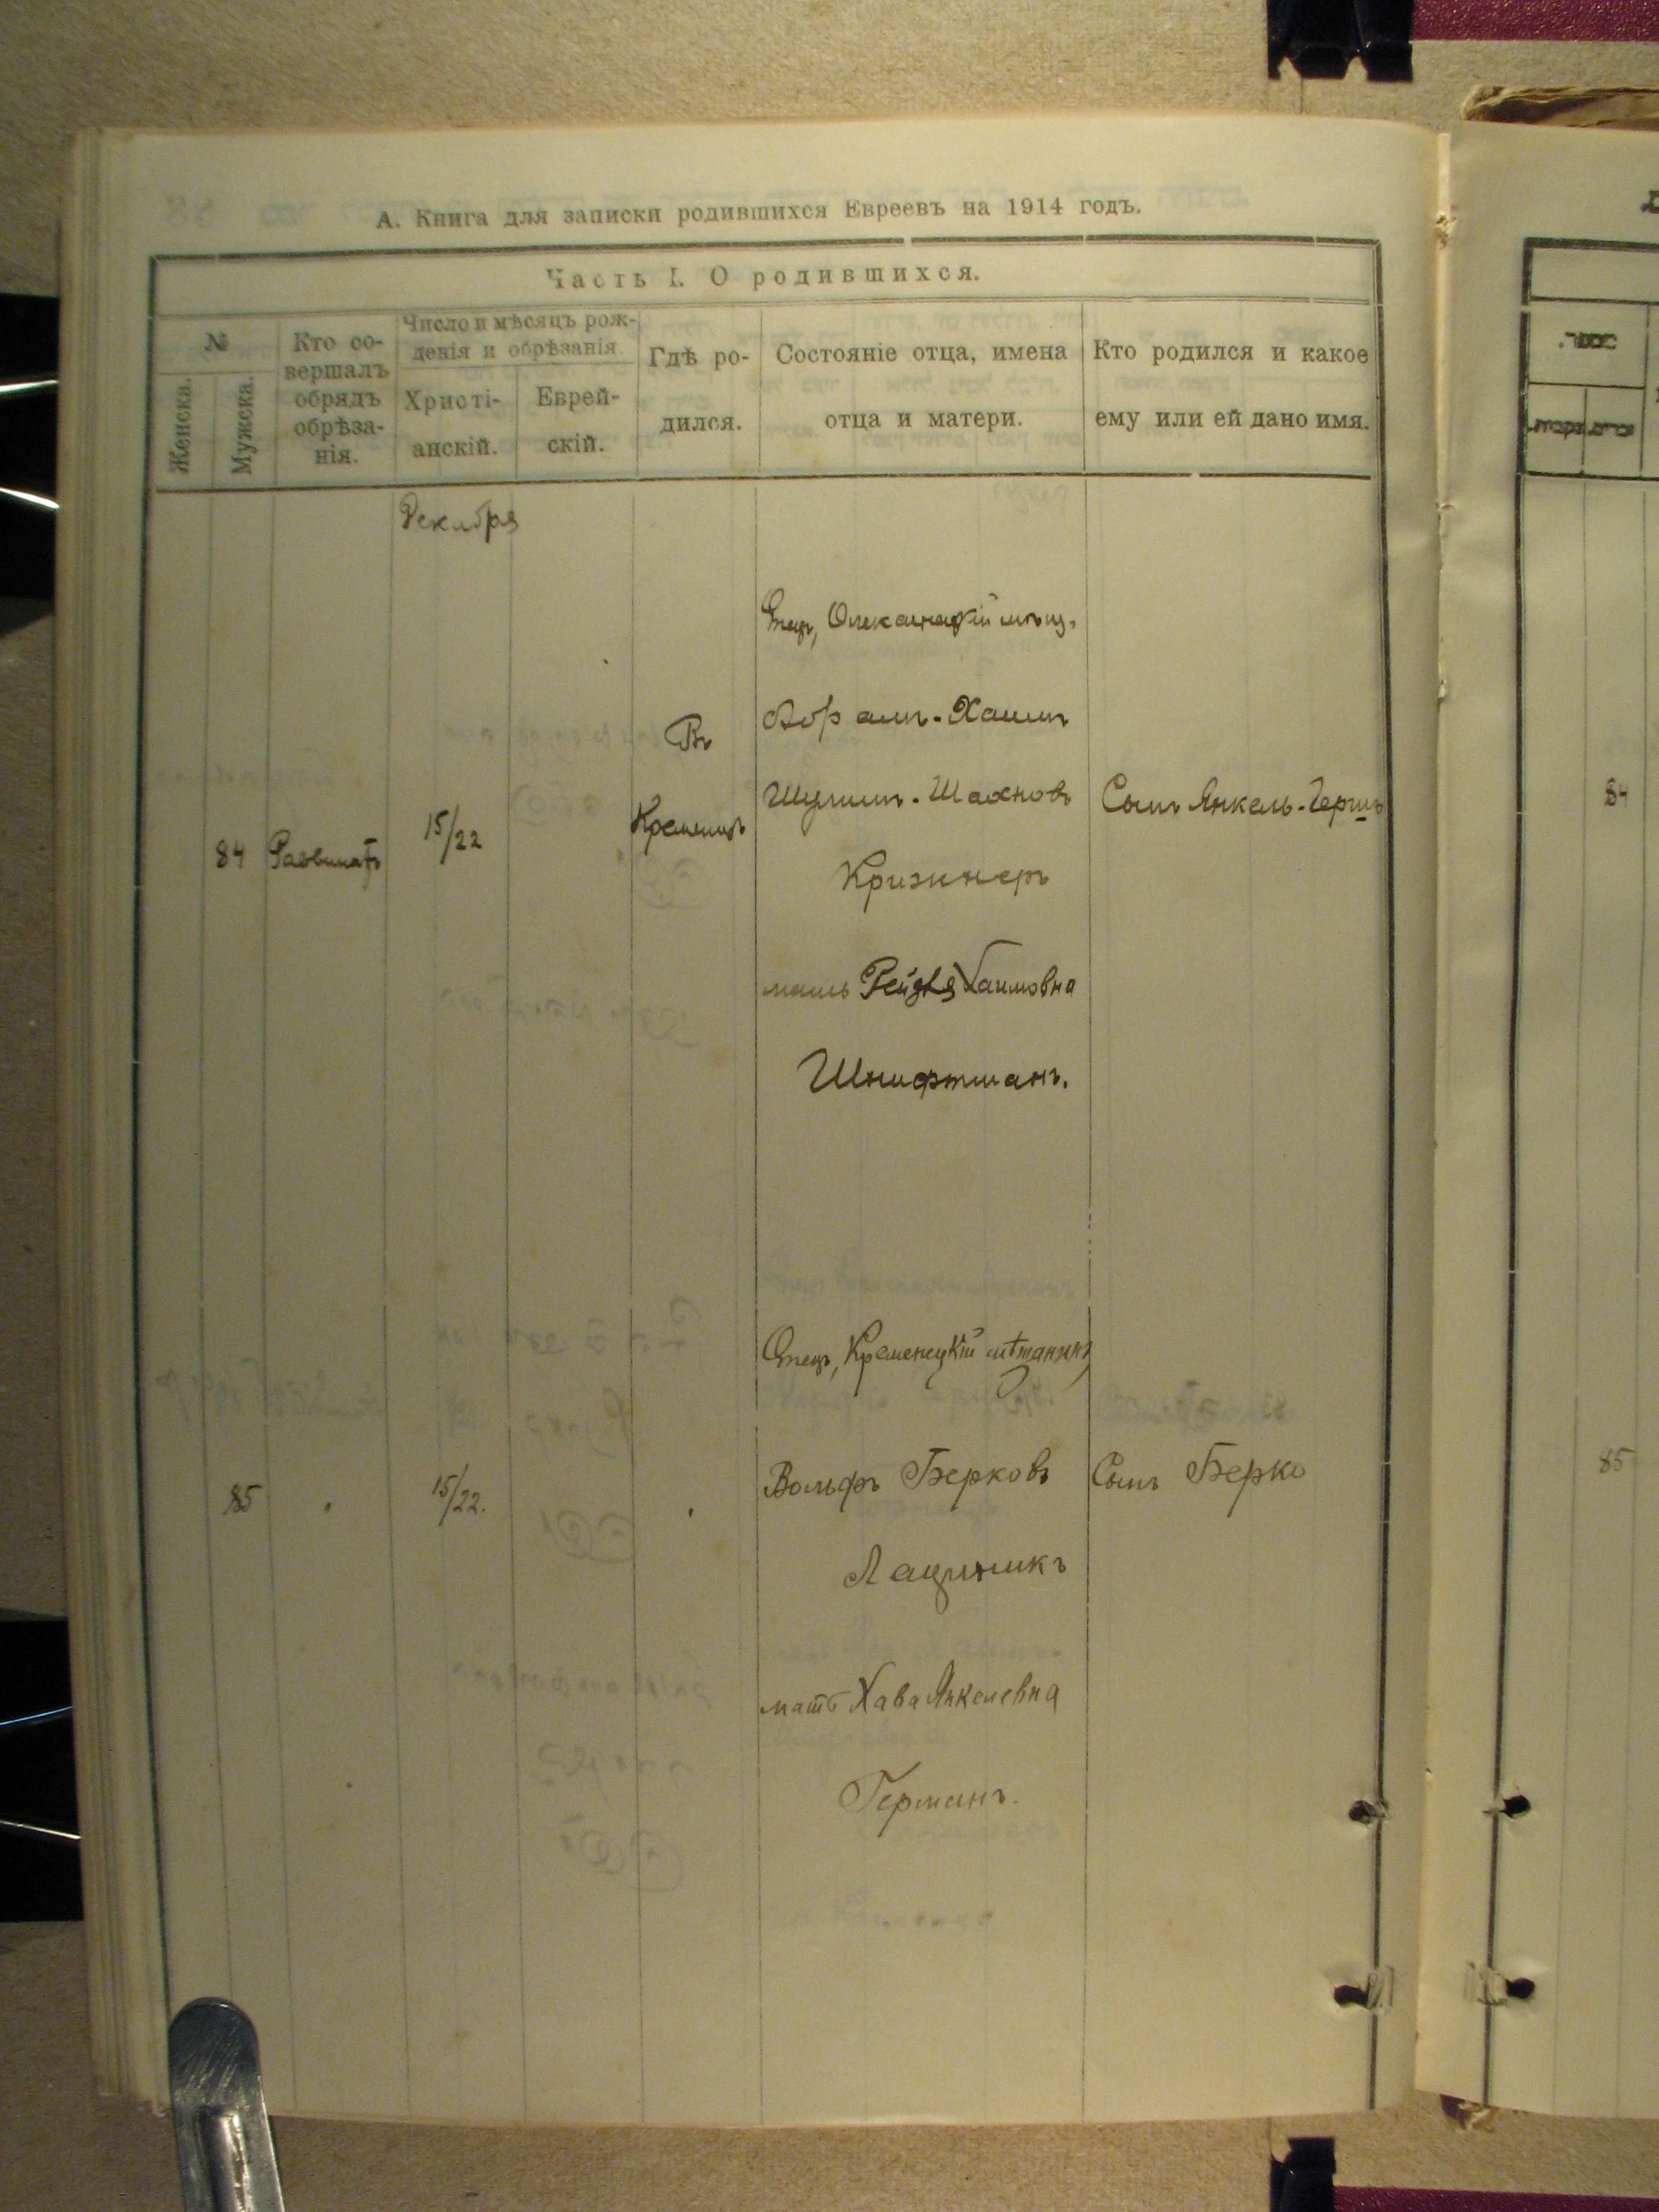 А. Книга для записки родившихся Евреевъ на 1914 годъ.
Часть I. О родившихся.
№
Женска.
Мужска.
Кто со-
вершалъ
обрядъ
обрѣза-
нія.
Число и мѣсяцъ рож-
денія и обрѣзанія
Христі-
анскій.
Еврей-
скій.
Гдѣ ро-
дился.
Состояніе отца, имена
отца и матери.
Кто родился и какое
ему или ей дано имя.
Декабря
84
15/22
Въ
Кременцѣ
Отецъ,
Абрамъ-Хаимъ
Шулимъ-Шахновъ
Кризнеръ
мать Рейзя Хаимовна
Шнифтманъ.
Сынъ Янкель-Гершъ
85
15/22.
Отецъ, Кременецкій мѣщанинъ
Вольфъ Берковъ
Лацникъ
мать Хава Янкелевна
Германъ.
Сынъ Берко
84
85